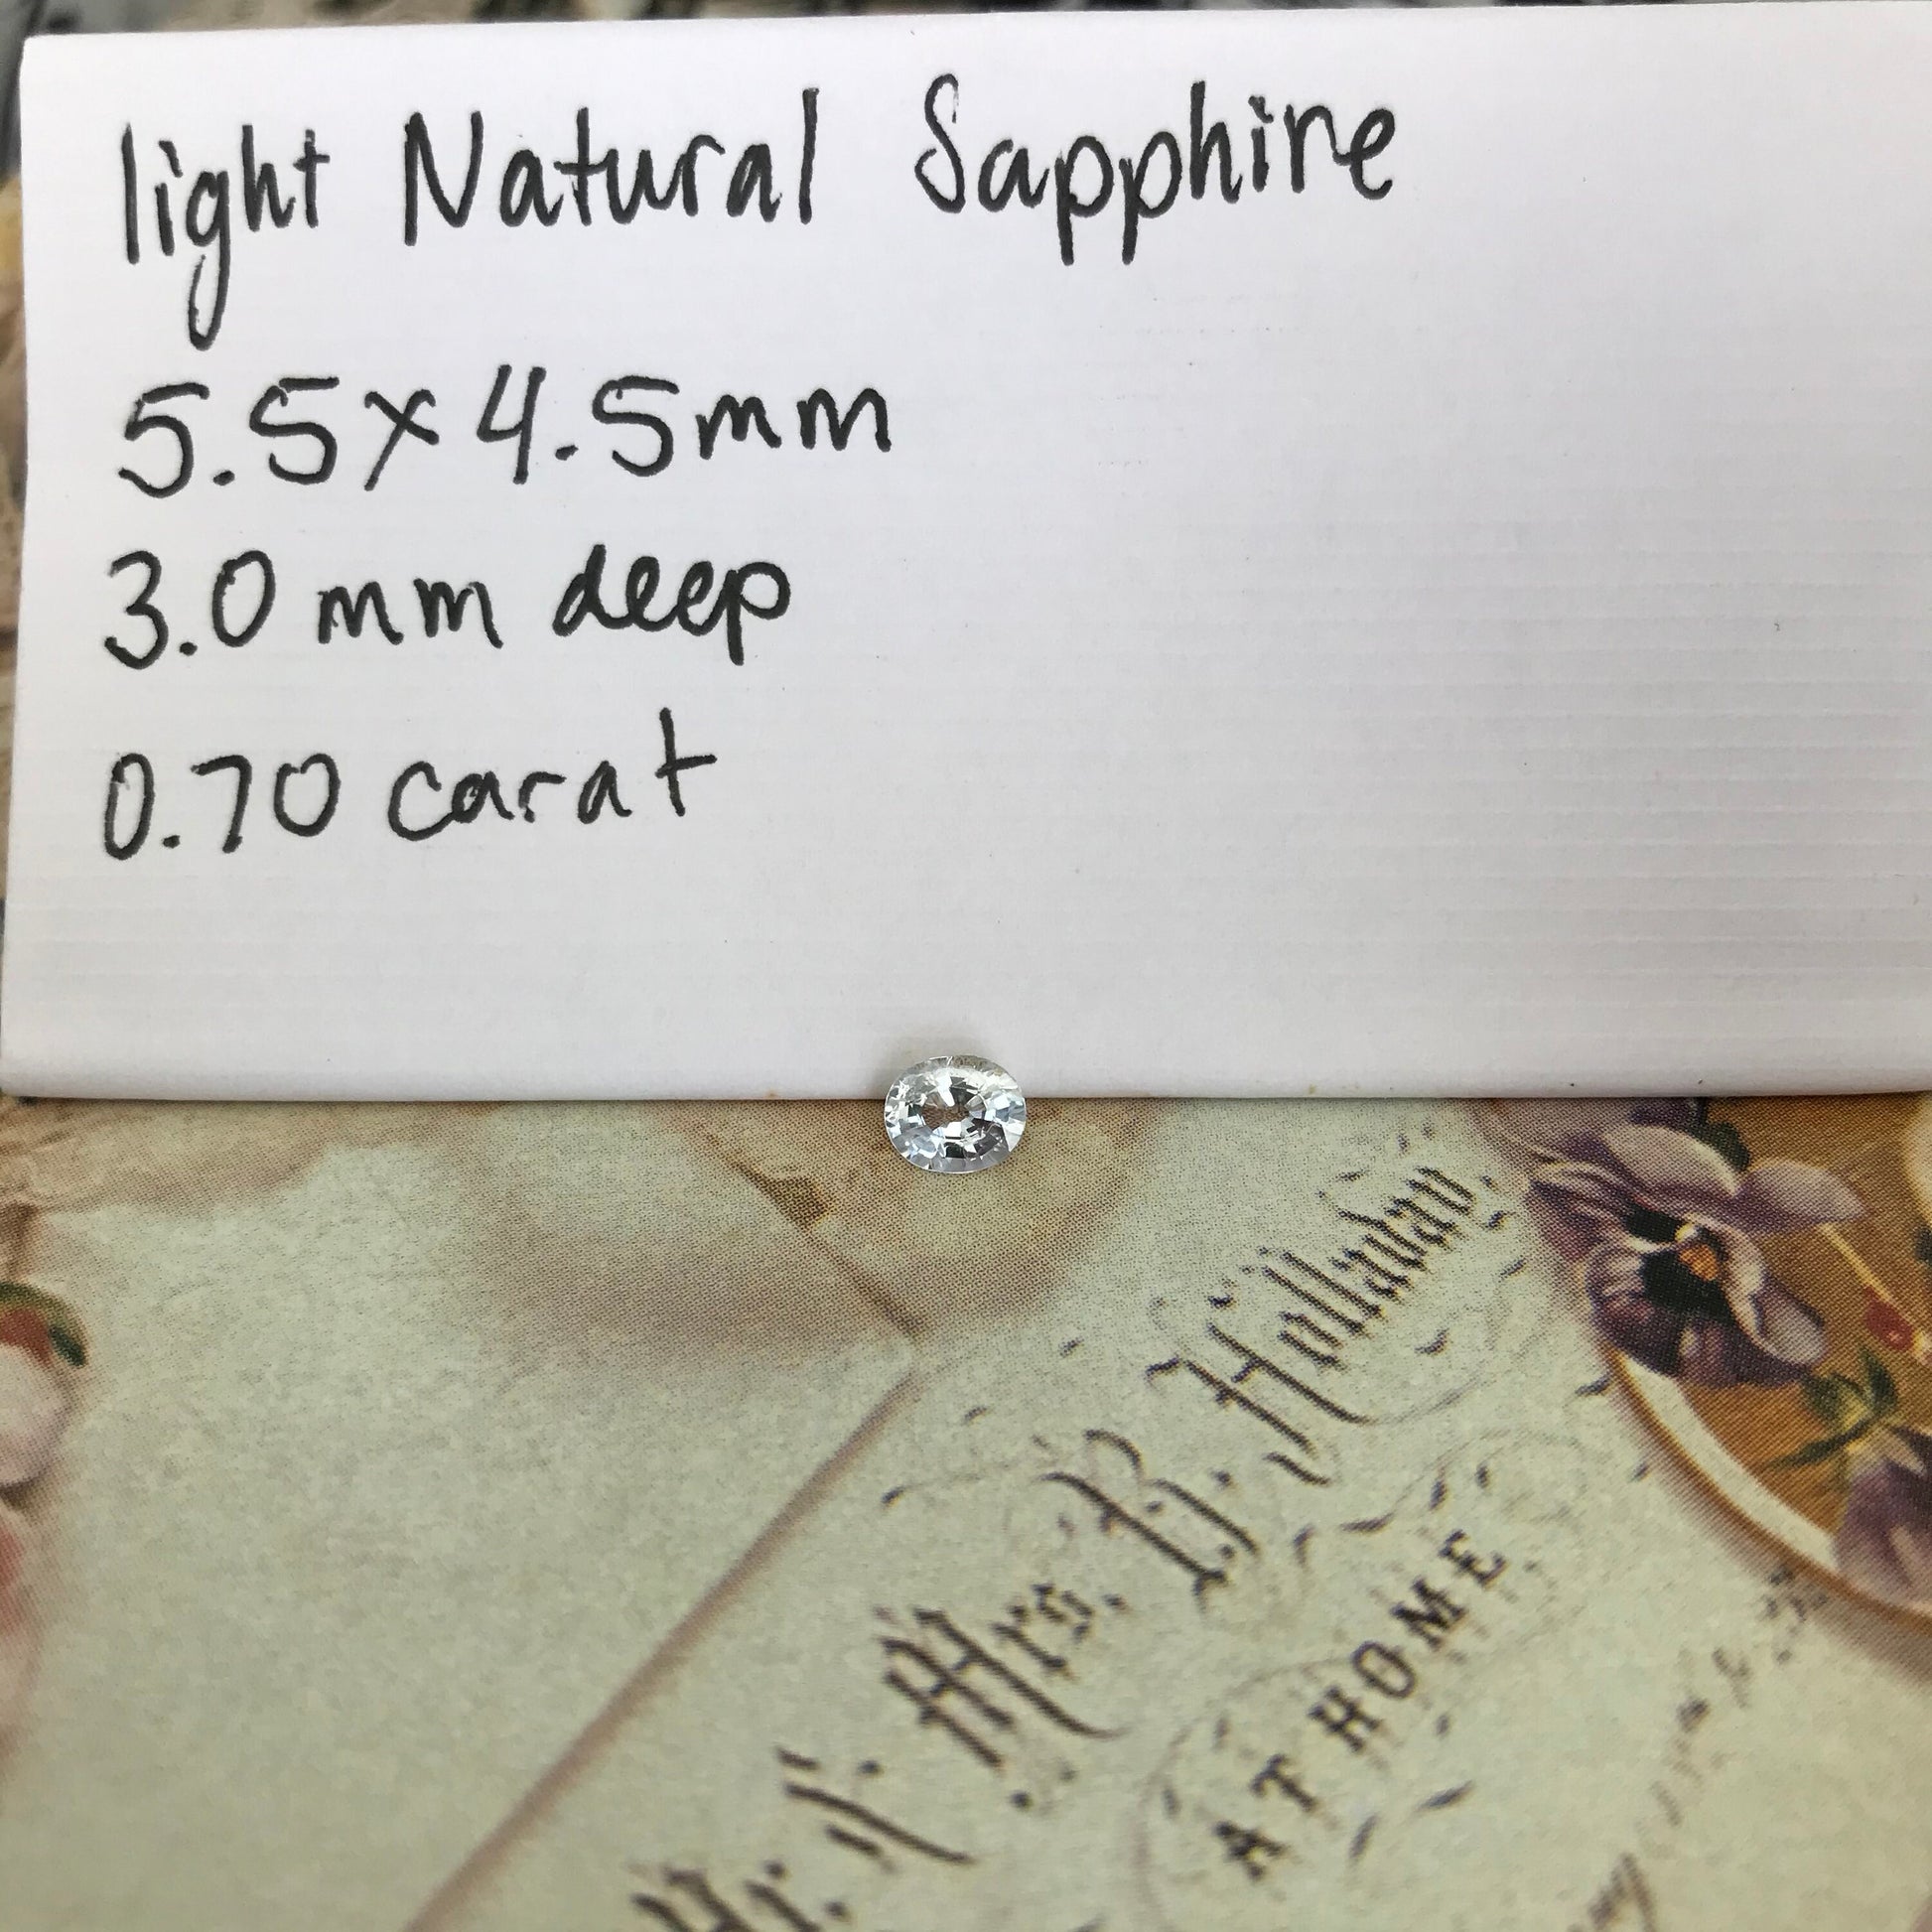 light Natural Sapphire
5.5x4.5mm
3.0mm deep
0.70 carat
Mr. & Mrs. B. Holladay.
AT HOME